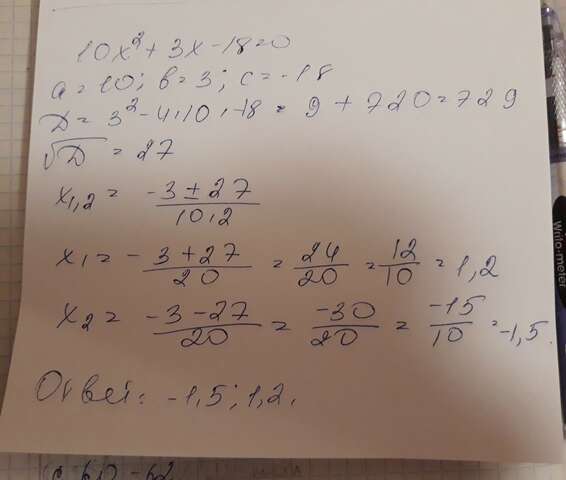 10x² + 3x - 18 = 0
a = 10; b = 3; c = -18
D = 3² - 4·10·-18 = 9 + 720 = 729
√D = 27
x₁,₂ = (-3 ± 27)/(10·2)
x₁ = (-3 + 27)/20 = 24/20 = 12/10 = 1,2
x₂ = (-3 - 27)/20 = -30/20 = -15/10 = -1,5.
Ответ: -1,5; 1,2.
Write-o-meter